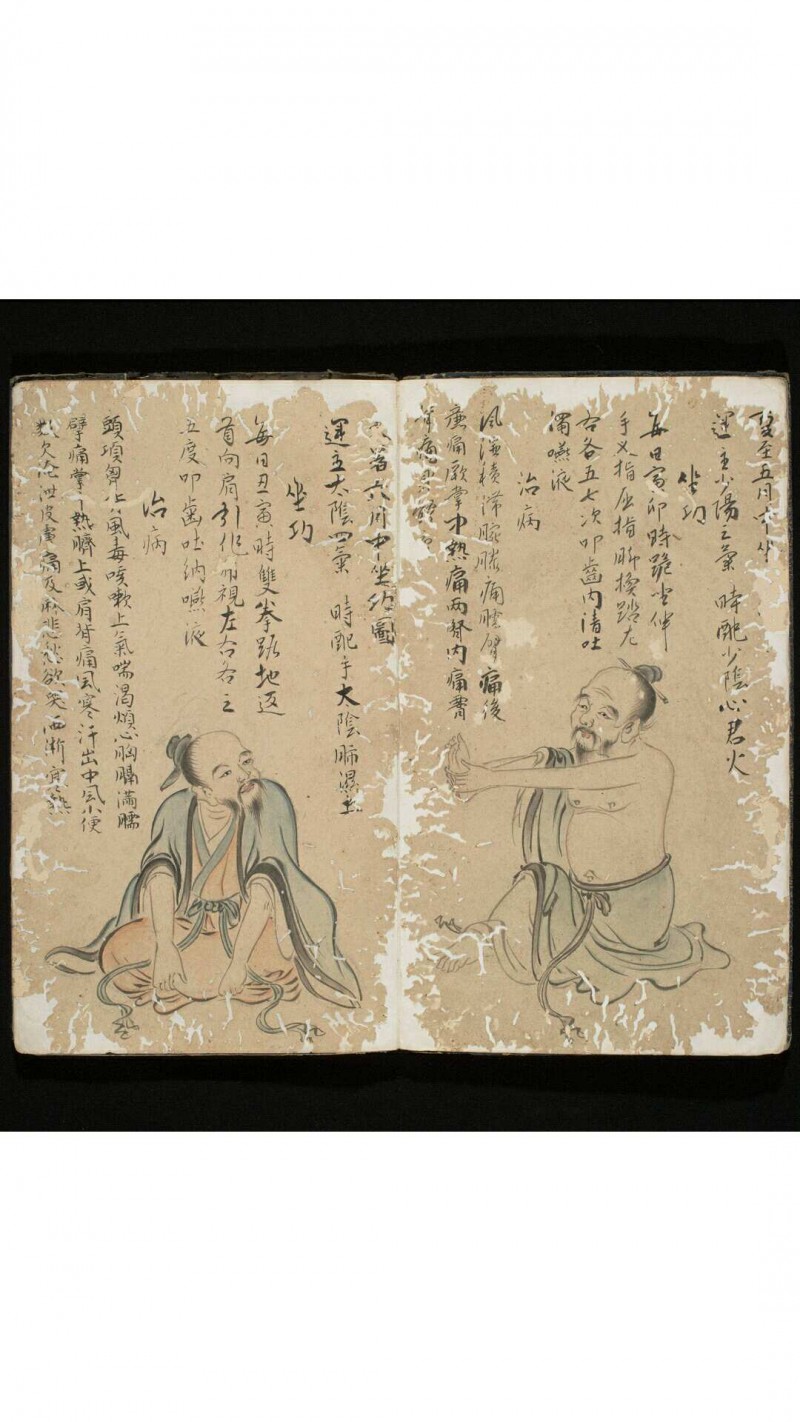 夏至五月中坐
運主少陽三氣 時配少陰心君火
坐功
每日寅卯時跪坐伸
手叉指屈指腳換踏左
右各五七次叩齒內清吐
濁嚥液
治病
風濕積滯腕膝痛臑臂痛後
痛厥掌中熱痛兩腎內痛
背痛
暑六月中坐功圖
運主太陰四氣 時配手太陰肺濕土
坐功
每日丑寅時雙拳踞地返
首向肩引作虎視左右各三
五度叩齒吐納嚥液
治病
頭項 風毒咳嗽上氣喘渴煩心胸膈滿臑
臂痛掌中熱臍上或肩背痛風寒汗出中風小便
數欠淹泄皮膚痛及麻悲愁欲哭洒淅寒熱